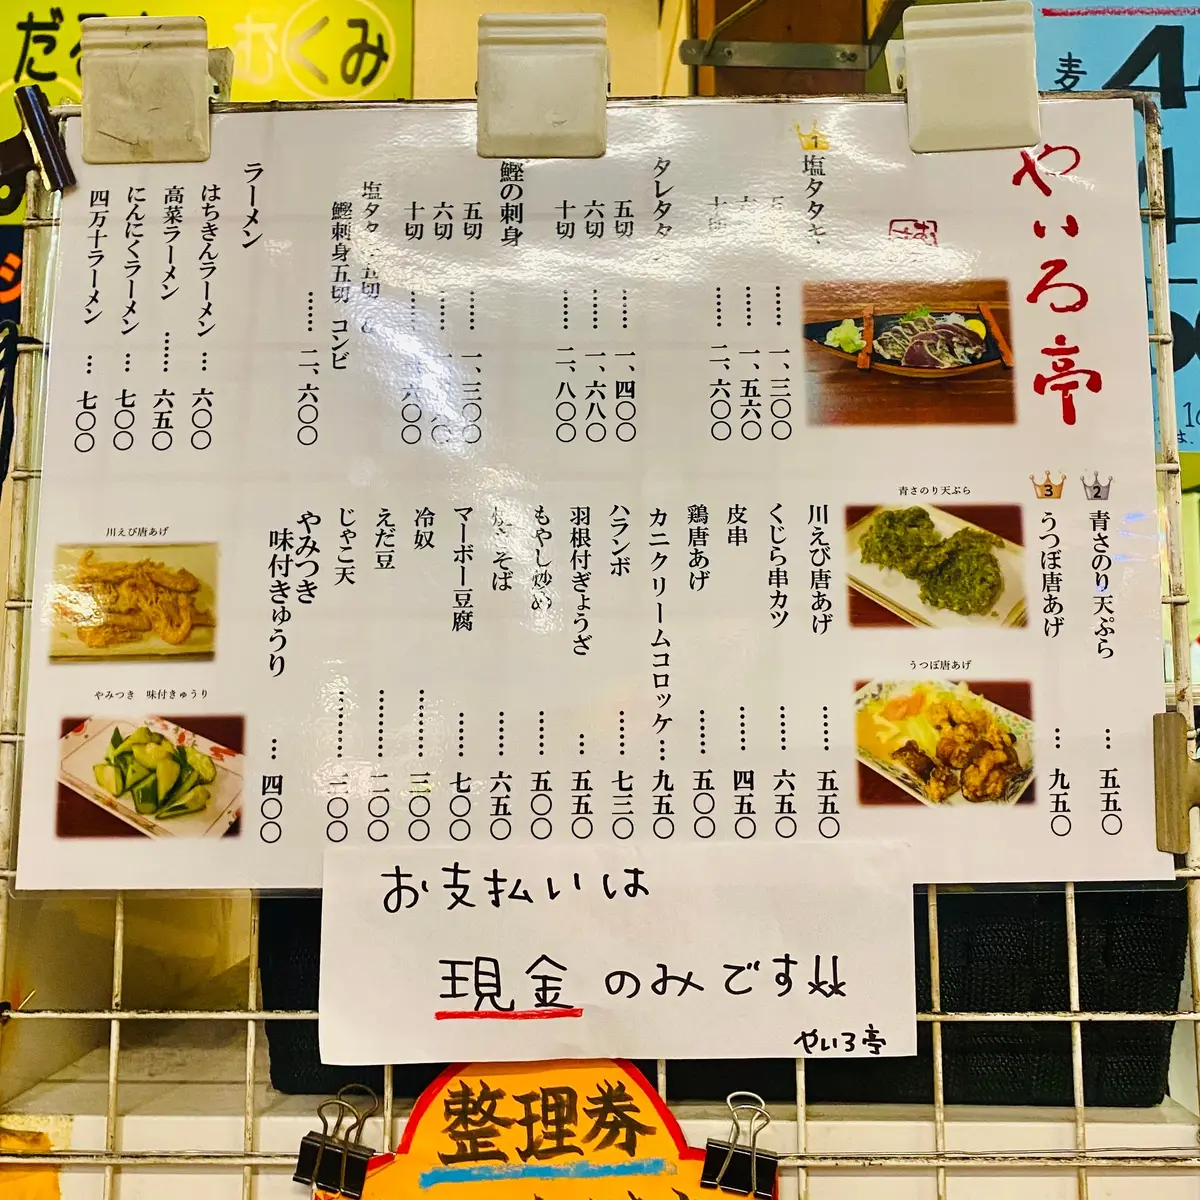 やいろ亭
1
塩タタキ
一、三〇〇
一、五六〇
十切 …… 二、六〇〇
タレタタ
五切 …… 一、四〇〇
六切 …… 一、六八〇
十切 …… 二、八〇〇
鰹の刺身
五切 …… 一、三〇〇
六切 ……
十切 …… 六〇〇
塩タタ 五切
鰹刺身五切 コンビ
…… 二、六〇〇
ラーメン
はちきんラーメン … 六〇〇
高菜ラーメン …… 六五〇
にんにくラーメン … 七〇〇
四万十ラーメン … 七〇〇
2
青さのり天ぷら … 五五〇
3
うつぼ唐あげ … 九五〇
青さのり天ぷら
うつぼ唐あげ
川えび唐あげ …… 五五〇
くじら串カツ …… 六五〇
皮串 …… 四五〇
鶏唐あげ …… 五〇〇
カニクリームコロッケ … 九五〇
ハランボ …… 七三〇
羽根付ぎょうざ … 五五〇
もやし炒め …… 五〇〇
そば …… 六五〇
マーボー豆腐 …… 七〇〇
冷奴 ……… 三〇〇
えだ豆 ……… 二〇〇
じゃこ天 ……… 三〇〇
やみつき
味付きゅうり … 四〇〇
川えび唐あげ
やみつき 味付きゅうり
お支払いは
現金のみです!!
やいろ亭
整理券
むくみ
麦